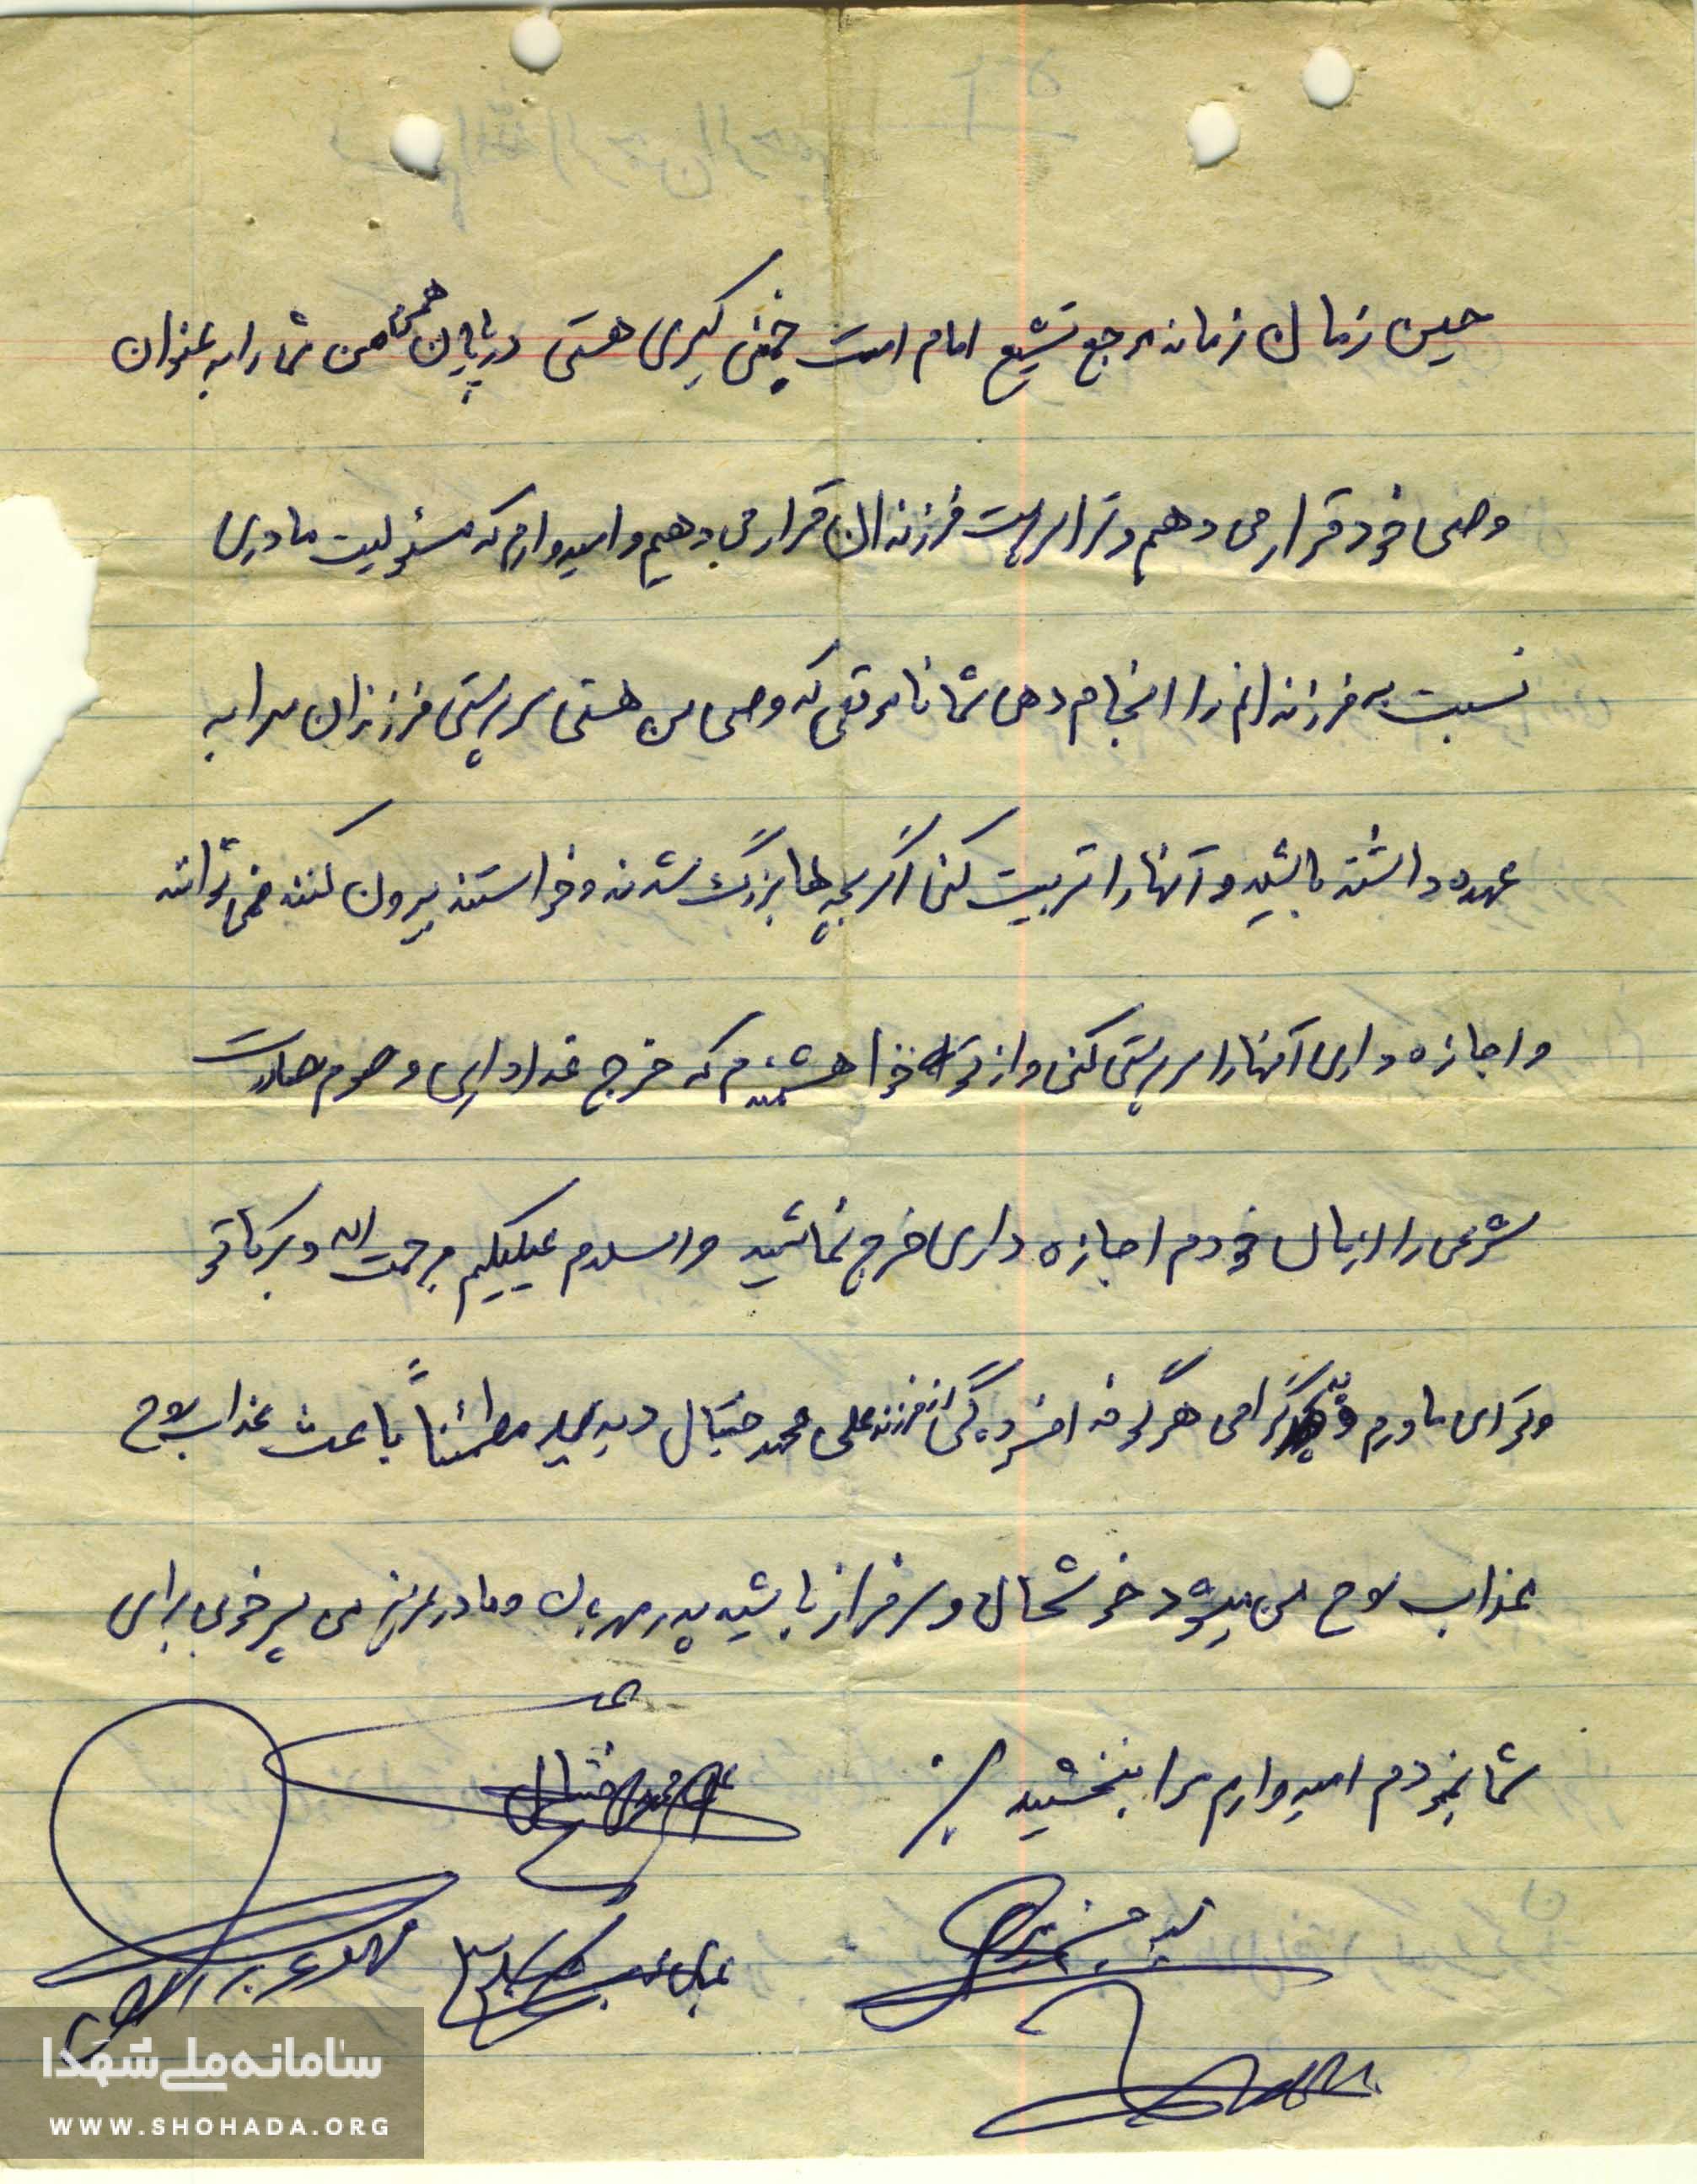 حسین زمان زمانه مرجع تشیع امام امت خمینی کبیری هستی در پایان همسرم من شما را به عنوان
وصی خود قرار می دهم و ترا سرپرست فرزندان قرار می دهیم و امیدوارم که مسئولیت مادری
نسبت به فرزندانم را انجام دهی شما تا موقعی که وصی من هستی سرپرستی فرزندان مرا به
عهده داشته باشید و آنها را تربیت کنی اگر بچه ها بزرگ شدند و خواستند بیرون کنند نمی توانند
و اجازه داری آنها را سرپرستی کنی و از تو خواهشمندم که خرج عزاداری و صوم صلات
شرعی را از مال خودم اجازه داری خرج نمائید والسلام علیکم و رحمت الله و برکاته
و توای مادرم و پدر گرامی هر گونه افسردگی از فرزند علی محمد ختال دیدید مطمئناً باعث عذاب روح
عذاب روح من میشود خوشحال و سرفراز باشید پدر مهربان و مادر عزیز من پسر خوبی برای
شما نبودم امیدوارم مرا ببخشید
علی محمد ختال
سامانه ملی شهدا
WWW.SHOHADA.ORG